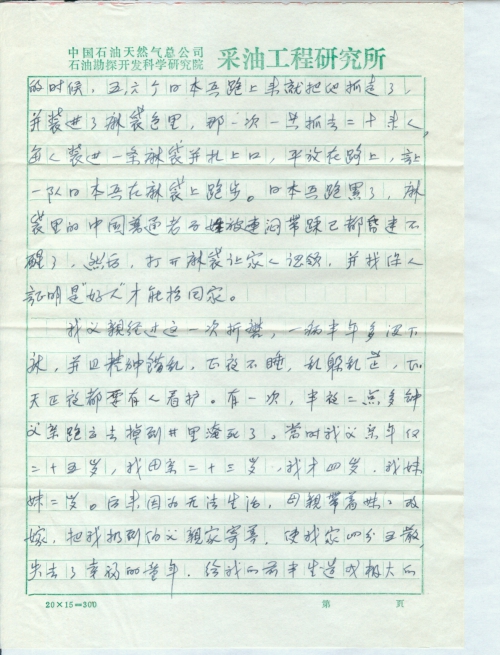 中国石油天然气总公司
石油勘探开发科学研究院 采油工程研究所
的时候，五六个日本兵跑上来就把他抓走了，
并装进了麻袋包里，那一次一共抓去二十来人，
每人装进一条麻袋并扎上口，平放在路上，让
一队日本兵在麻袋上跑步。日本兵跑累了，麻
袋里的中国普通老百姓被连闷带踩已都昏迷不
醒了，然后，打开麻袋让家人认领，并找保人
证明是“好人”才能抬回家。
我父亲经过这一次折磨，一病半年多没下
床，并且精神错乱，正夜不睡，乱躲乱𦲷，正
天正夜都要有人看护。有一次，半夜二点多钟
父亲跑出去掉到井里淹死了，当时我父亲年仅
二十五岁，我母亲二十三岁，我才四岁，我妹
妹二岁。后来因为无法生活，母亲带着妹妹改
嫁，把我扔到伯父亲家寄养，使我家四分五散，
失去了幸福的童年，给我的前半生造成极大的
20×15=300
第 页